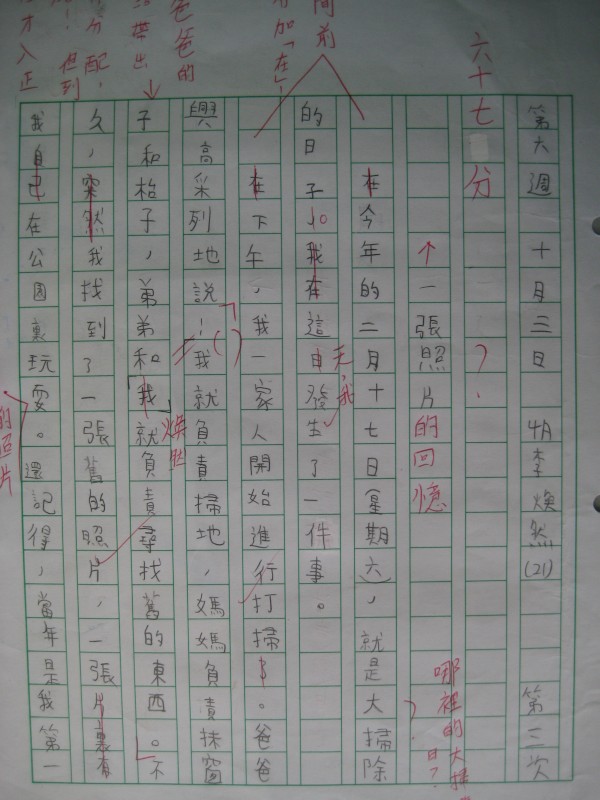 第六週 十月三日 4A李煥然(21) 第三次
六十七分
一張照片的回憶
哪裡的大掃
日?
在今年的二月十七日(星期六),就是大掃除
的日子,我在這 發生了一件事。
天,我
間前
加「在」!
在下午,我一家人開始進行打掃。爸爸
興高采列地說!我就負責掃地,媽媽負責抹窗
爸爸的
子和枱子,弟弟和我就負責尋找舊的東西。不
煥然
久,突然我找到了一張舊的照片,一張片裏有
分配,
但到
我自己在公園裏玩耍。還記得,當年是我第一
才入正
的照片